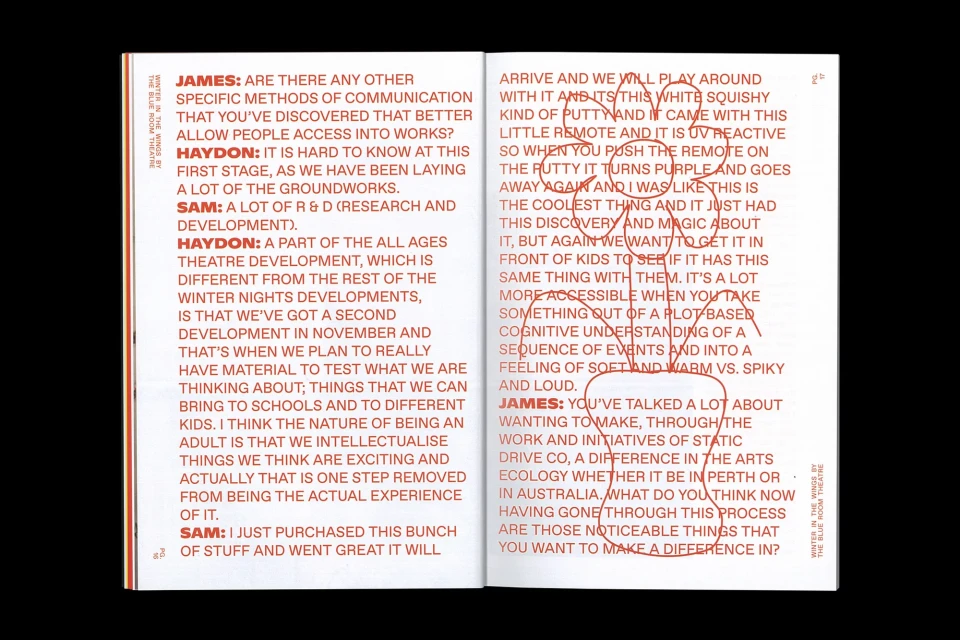 WINTER IN THE WINGS BY
THE BLUE ROOM THEATRE
JAMES: ARE THERE ANY OTHER
SPECIFIC METHODS OF COMMUNICATION
THAT YOU'VE DISCOVERED THAT BETTER
ALLOW PEOPLE ACCESS INTO WORKS?
HAYDON: IT IS HARD TO KNOW AT THIS
FIRST STAGE, AS WE HAVE BEEN LAYING
A LOT OF THE GROUNDWORKS.
SAM: A LOT OF R & D (RESEARCH AND
DEVELOPMENT).
HAYDON: A PART OF THE ALL AGES
THEATRE DEVELOPMENT, WHICH IS
DIFFERENT FROM THE REST OF THE
WINTER NIGHTS DEVELOPMENTS,
IS THAT WE'VE GOT A SECOND
DEVELOPMENT IN NOVEMBER AND
THAT'S WHEN WE PLAN TO REALLY
HAVE MATERIAL TO TEST WHAT WE ARE
THINKING ABOUT; THINGS THAT WE CAN
BRING TO SCHOOLS AND TO DIFFERENT
KIDS. I THINK THE NATURE OF BEING AN
ADULT IS THAT WE INTELLECTUALISE
THINGS WE THINK ARE EXCITING AND
ACTUALLY THAT IS ONE STEP REMOVED
FROM BEING THE ACTUAL EXPERIENCE
OF IT.
SAM: I JUST PURCHASED THIS BUNCH
OF STUFF AND WENT GREAT IT WILL
PG.
16
ARRIVE AND WE WILL PLAY AROUND
WITH IT AND ITS THIS WHITE SQUISHY
KIND OF PUTTY AND IT CAME WITH THIS
LITTLE REMOTE AND IT IS UV REACTIVE
SO WHEN YOU PUSH THE REMOTE ON
THE PUTTY IT TURNS PURPLE AND GOES
AWAY AGAIN AND I WAS LIKE THIS IS
THE COOLEST THING AND IT JUST HAD
THIS DISCOVERY AND MAGIC ABOUT
IT, BUT AGAIN WE WANT TO GET IT IN
FRONT OF KIDS TO SEE IF IT HAS THIS
SAME THING WITH THEM. IT'S A LOT
MORE ACCESSIBLE WHEN YOU TAKE
SOMETHING OUT OF A PLOT-BASED
COGNITIVE UNDERSTANDING OF A
SEQUENCE OF EVENTS AND INTO A
FEELING OF SOFT AND WARM VS. SPIKY
AND LOUD.
JAMES: YOU'VE TALKED A LOT ABOUT
WANTING TO MAKE, THROUGH THE
WORK AND INITIATIVES OF STATIC
DRIVE CO, A DIFFERENCE IN THE ARTS
ECOLOGY WHETHER IT BE IN PERTH OR
IN AUSTRALIA. WHAT DO YOU THINK NOW
HAVING GONE THROUGH THIS PROCESS
ARE THOSE NOTICEABLE THINGS THAT
YOU WANT TO MAKE A DIFFERENCE IN?
PG.
17
WINTER IN THE WINGS BY
THE BLUE ROOM THEATRE